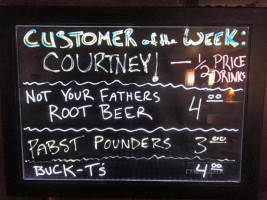 CUSTOMER of the WEEK:
COURTNEY! — 1/2 PRICE DRINKS
NOT YOUR FATHERS
ROOT BEER 4 00
PABST POUNDERS 3 00
BUCK-T's 4 00